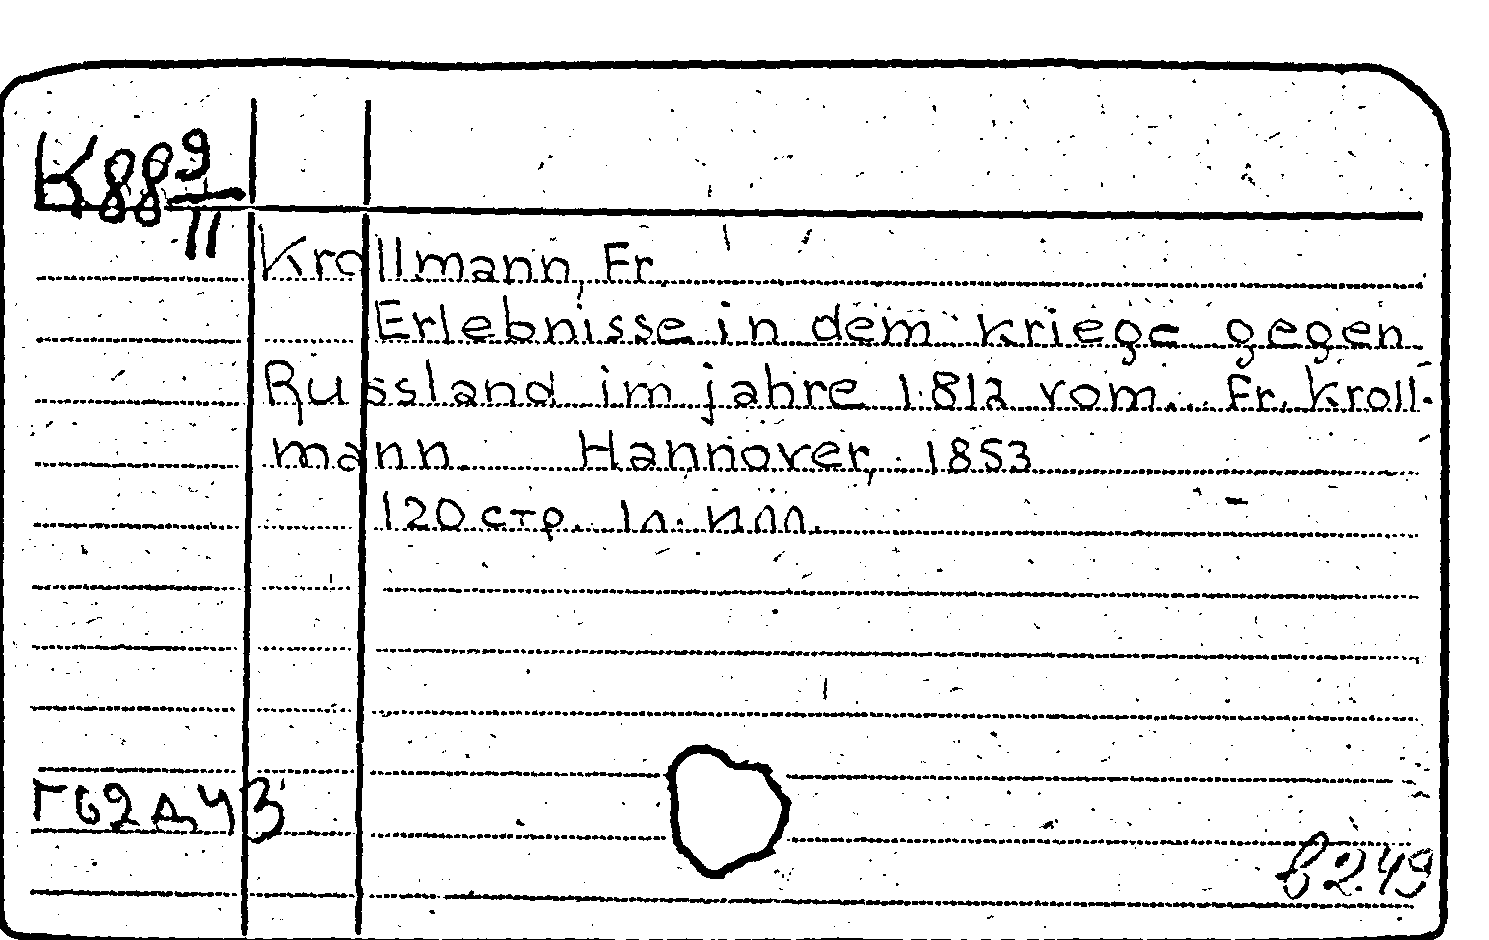 К88 9/II
Krollmann, Fr
Erlebnisse in dem kriege gegen
Russland im jahre 1812 vom... Fr. Kroll-
mann. Hannover, 1853
120 стр. 1 л. илл.
Г62д43
В249